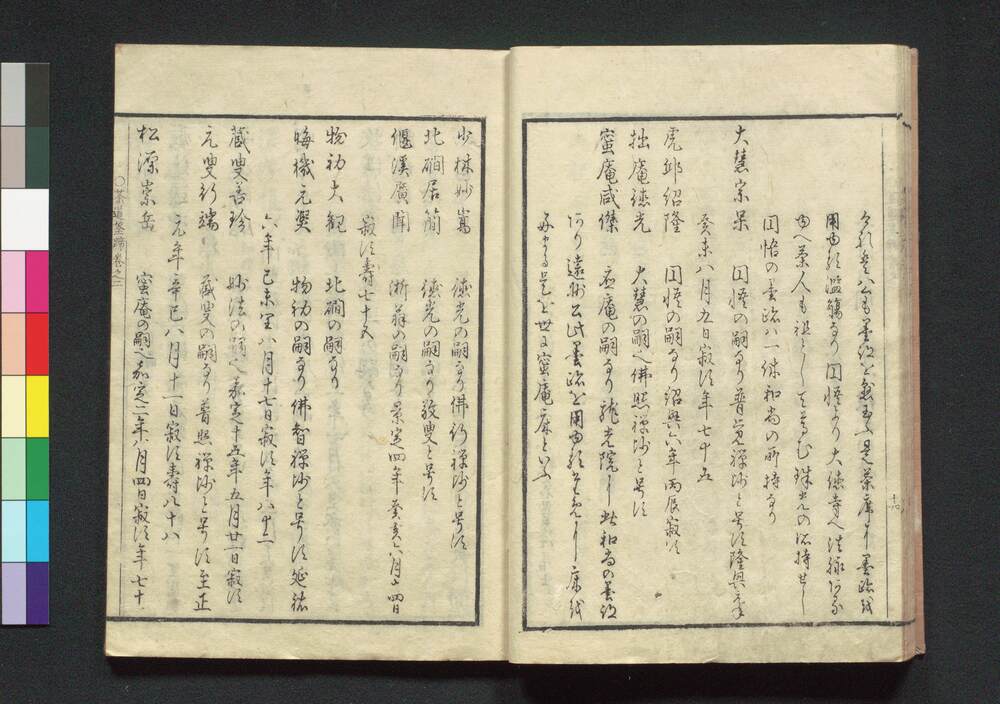 用ゆる濫觴なり圜悟より大徳寺へ法縁ある
ゆへ茶人も祖としてたうとむ珠光の所持せし
圜悟の墨跡ハ一休和尚の所持なり
大慧宗杲 圜悟の嗣なり普覚禅師と号す隆興元年
癸未八月九日寂す年七十五
虎邱紹隆 圜悟の嗣なり紹興六年丙辰寂す
拙庵徳光 大慧の嗣也佛照禅師と号す
蜜庵咸傑 応庵の嗣なり龍光院に此和尚の墨跡
あり遠州公此墨跡を用ゆる
是を世に蜜庵床といふ
少林妙嵩 徳光の嗣なり佛行禅師と号す
北磵居簡 徳光の嗣なり敬叟と号す
偃溪廣聞 浙翁の嗣なり景定四年癸亥六月十四日
寂す壽七十五
物初大観 北磵の嗣なり
晦機元熙 物初の嗣なり佛智禅師と号す延祐
六年己未閏八月十七日寂す年八十二
蔵叟善珍 妙法の嗣也嘉定十五年五月廿一日寂す
元叟行端 蔵叟の嗣なり普照禅師と号す至正
元年辛巳八月十一日寂す壽八十八
松源崇岳 蜜庵の嗣也嘉定二年八月四日寂す年七十
○茶道筌蹄巻之二